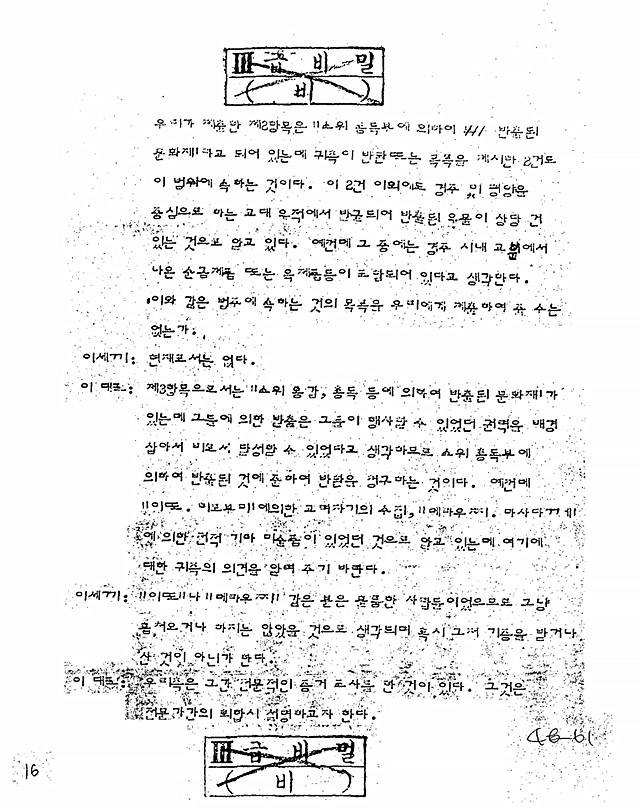 III 급 비 밀
( 비 )
우리가 제출한 제2항목은 "소위 총독부에 의하여 반출된
문화재"라고 되어 있는데 귀측이 반환 또는 목록을 제시한 2건도
이 범위에 속하는 것이다. 이 2건 이외에도 경주 및 평양을
중심으로 하는 고대 유적에서 반굴되어 반출된 유물이 상당 건
있는 것으로 알고 있다. 예컨데 그 중에는 경주 시내 고분에서
나온 순금제품 또는 옥제품등이 포함되어 있다고 생각한다.
이와 같은 범주에 속하는 것의 목록을 우리에게 제출하여 줄 수는
없는가.
이세끼: 현재로서는 없다.
이 대표: 제3항목으로서는 "소위 통감, 총독 등에 의하여 반출된 문화재"가
있는데 그들에 의한 반출은 그들이 행사할 수 있었던 권력을 배경
삼아서 비로서 달성할 수 있었다고 생각하므로 소위 총독부에
의하여 반출된 것에 준하여 반환을 청구하는 것이다. 예컨데
"이또. 히로부미"에의한 고려자기의 수집, "데라우찌. 마사다께"
에 의한 전적 기타 미술품이 있었던 것으로 알고 있는데 여기에
대한 귀측의 의견을 알려 주기 바란다.
이세끼: "이또"나 "데라우찌" 같은 분은 훌륭한 사람들이었으므로 그냥
훔쳐오거나 하지는 않았을 것으로 생각되며 혹시 그저 기증을 받거나
산 것이 아닌가 한다.
이 대표: 우리측은 그간 전문적인 증거 조사를 한 것이 있다. 그것은
전문가간의 회합시 설명하고자 한다.
46-61
III 급 비 밀
( 비 )
16